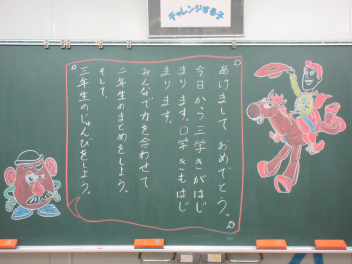 チャレンジする子
あけまして、おめでとう。
今日から三学きがはじ
まります。〇学きもはじ
まります。
みんなで力を合わせて、
二年生のまとめをしよう。
そして、
三年生のじゅんびをしよう。